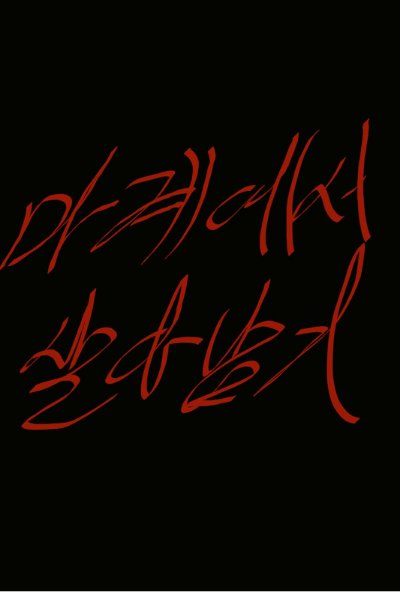 마계에서
살아남기